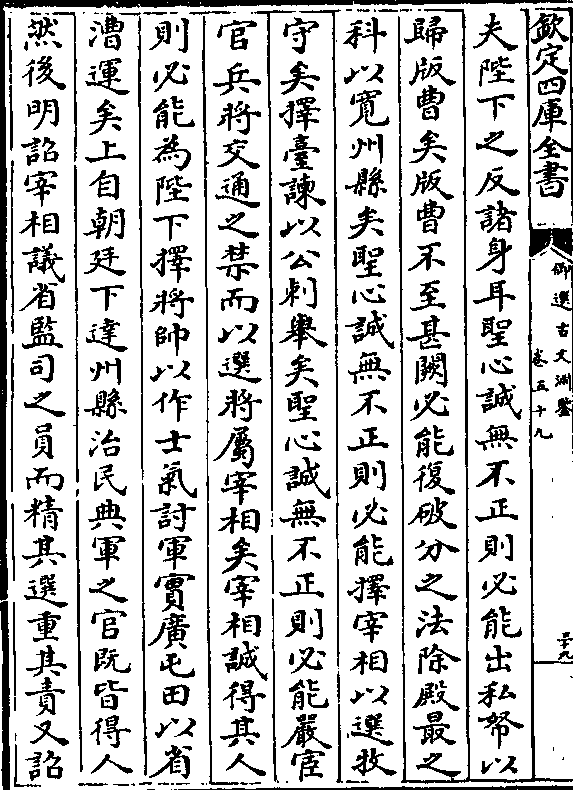 欽定四庫全書
御選古文淵鑒
卷五十九
三十九
夫陛下之反諸身耳聖心誠無不正則必能出私帑以
歸版曹矣版曹不至甚闕必能復破分之法除殿最之
科以寬州縣矣聖心誠無不正則必能擇宰相以選牧
守矣擇臺諫以公刺舉矣聖心誠無不正則必能嚴宦
官兵將交通之禁而以選將屬宰相矣宰相誠得其人
則必能為陛下擇將帥以作士氣討軍實廣屯田以省
漕運矣上自朝廷下達州縣治民典軍之官既皆得人
然後明詔宰相議省監司之員而精其選重其責又詔